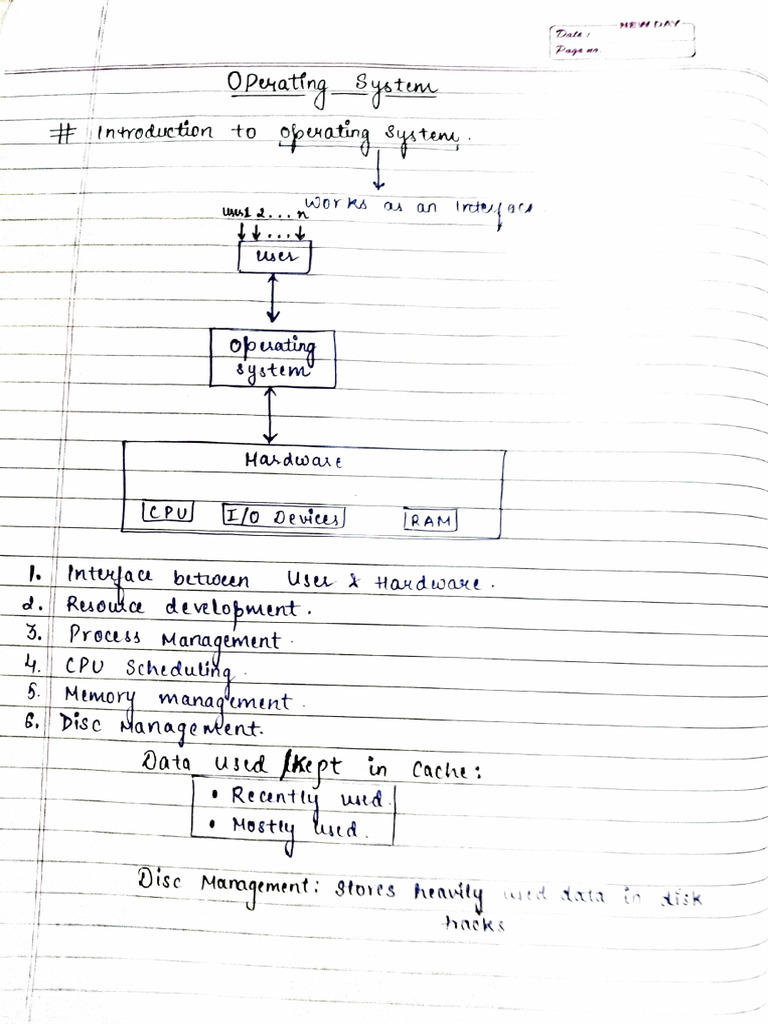 NEW DAY
Date :
Page no.
Operating System
# Introduction to operating system.
Works as an Interface
User1 2 . . . n
. . .
User
Operating
system
Hardware
CPU I/O Devices RAM
1. Interface between User & Hardware.
2. Resource development.
3. Process Management.
4. CPU Scheduling.
5. Memory management.
6. Disc Management.
Data used /Kept in Cache:
• Recently used.
• Mostly used.
Disc Management: Stores heavily used data in disk
tracks